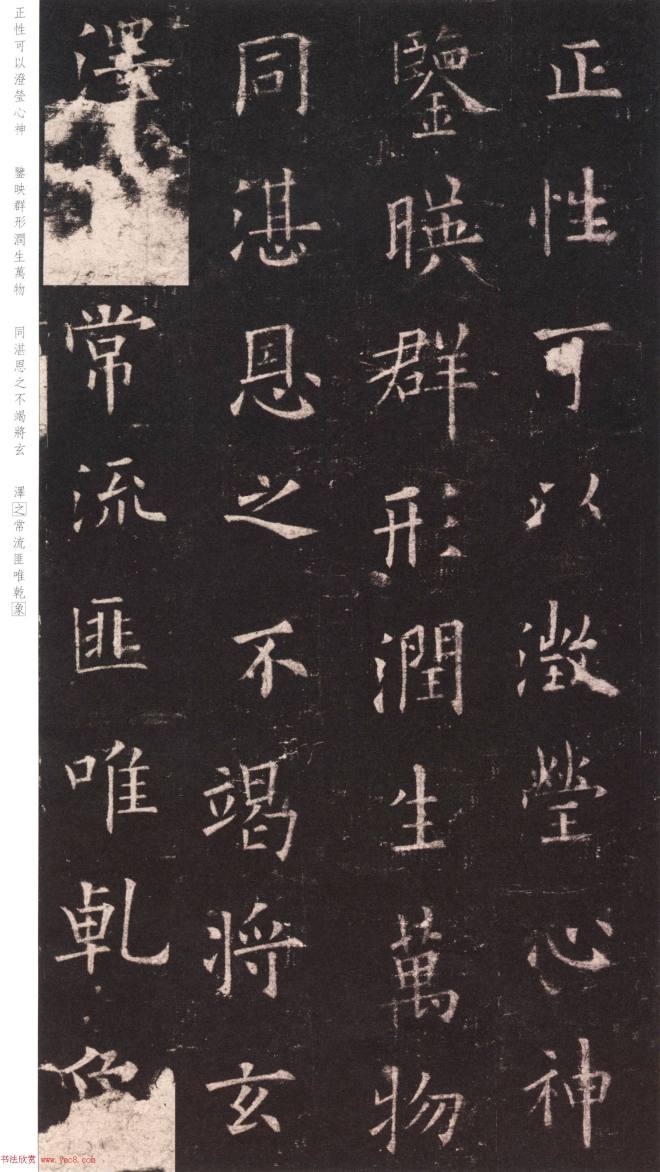 正性可以澂瑩心神
鑒暎群形潤生萬物
同湛恩之不竭將玄
澤常流匪唯乾象
正性可以澄瑩心神 鑒映群形潤生萬物 同湛恩之不竭將玄 澤之常流匪唯乾象
书法欣赏 www.yac8.com